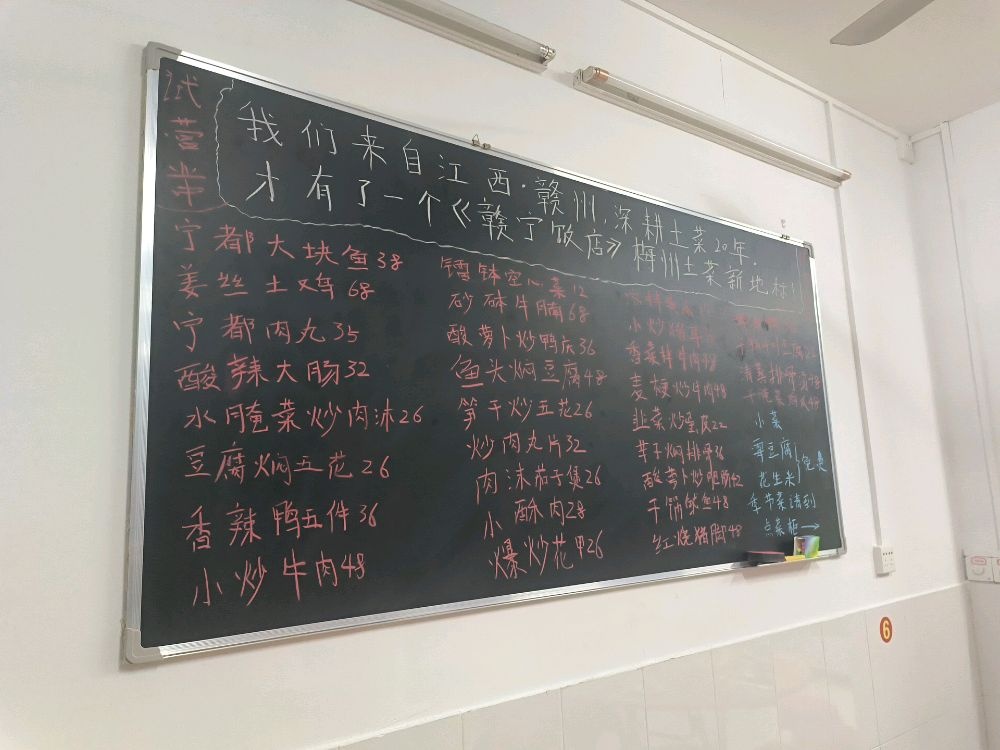 试营业
我们来自江西·赣州,深耕土菜20年.
才有了一个《赣宁饭店》梅州土菜新地标!
宁都大块鱼38
姜丝土鸡68
宁都肉丸35
酸辣大肠32
水腌菜炒肉沫26
豆腐焖五花26
香辣鸭五件36
小炒牛肉48
钵空心菜12
砂砵牛腩68
酸萝卜炒鸭庆36
鱼头焖豆腐48
笋干炒五花26
炒肉丸片32
肉沫茄子煲26
小酥肉28
爆炒花甲26
小炒猪耳
香菜拌牛肉48
麦梗炒牛肉48
韭菜炒蛋皮22
芋子焖排骨36
酸萝卜炒肥肠42
干锅鱿鱼48
红烧猪脚48
小菜
花生米
季节菜请到
点菜柜→
6